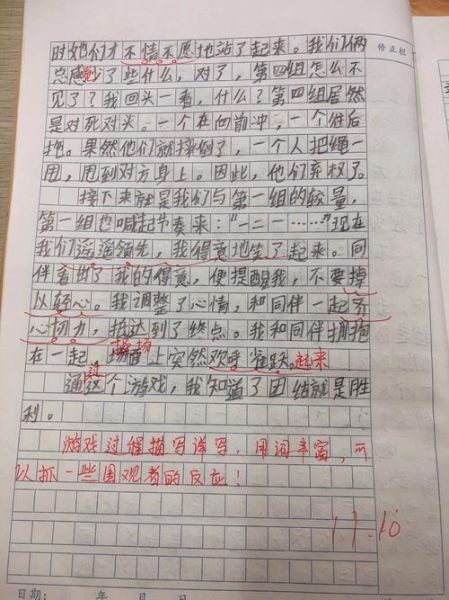 修正栏
时她们才不情不愿地站了起来。我们俩
总感觉少了些什么,对了,第四组怎么不
见了?我回头一看,什么?第四组居然
是对死对头。一个在向前冲,一个往后
拖。果然他们就摔倒了,一个人把绳一
团,甩到对方身上。因此,他们弃权了。
接下来就是我们与第一组的较量,
第一组也喊起节奏来:“一二一……”现在
我们遥遥领先,我得意地笑了起来。同
伴看出了我的得意,便提醒我,不要掉
以轻心。我调整了心情,和同伴一起齐
心协力,抵达到了终点。我和同伴拥抱
在一起,场面上突然欢呼雀跃。起来
通过这个游戏,我知道了团结就是胜
利。
游戏过程描写详写,用词丰富,可
以抓一些围观者的反应!
11.10
日期: 年 月 日